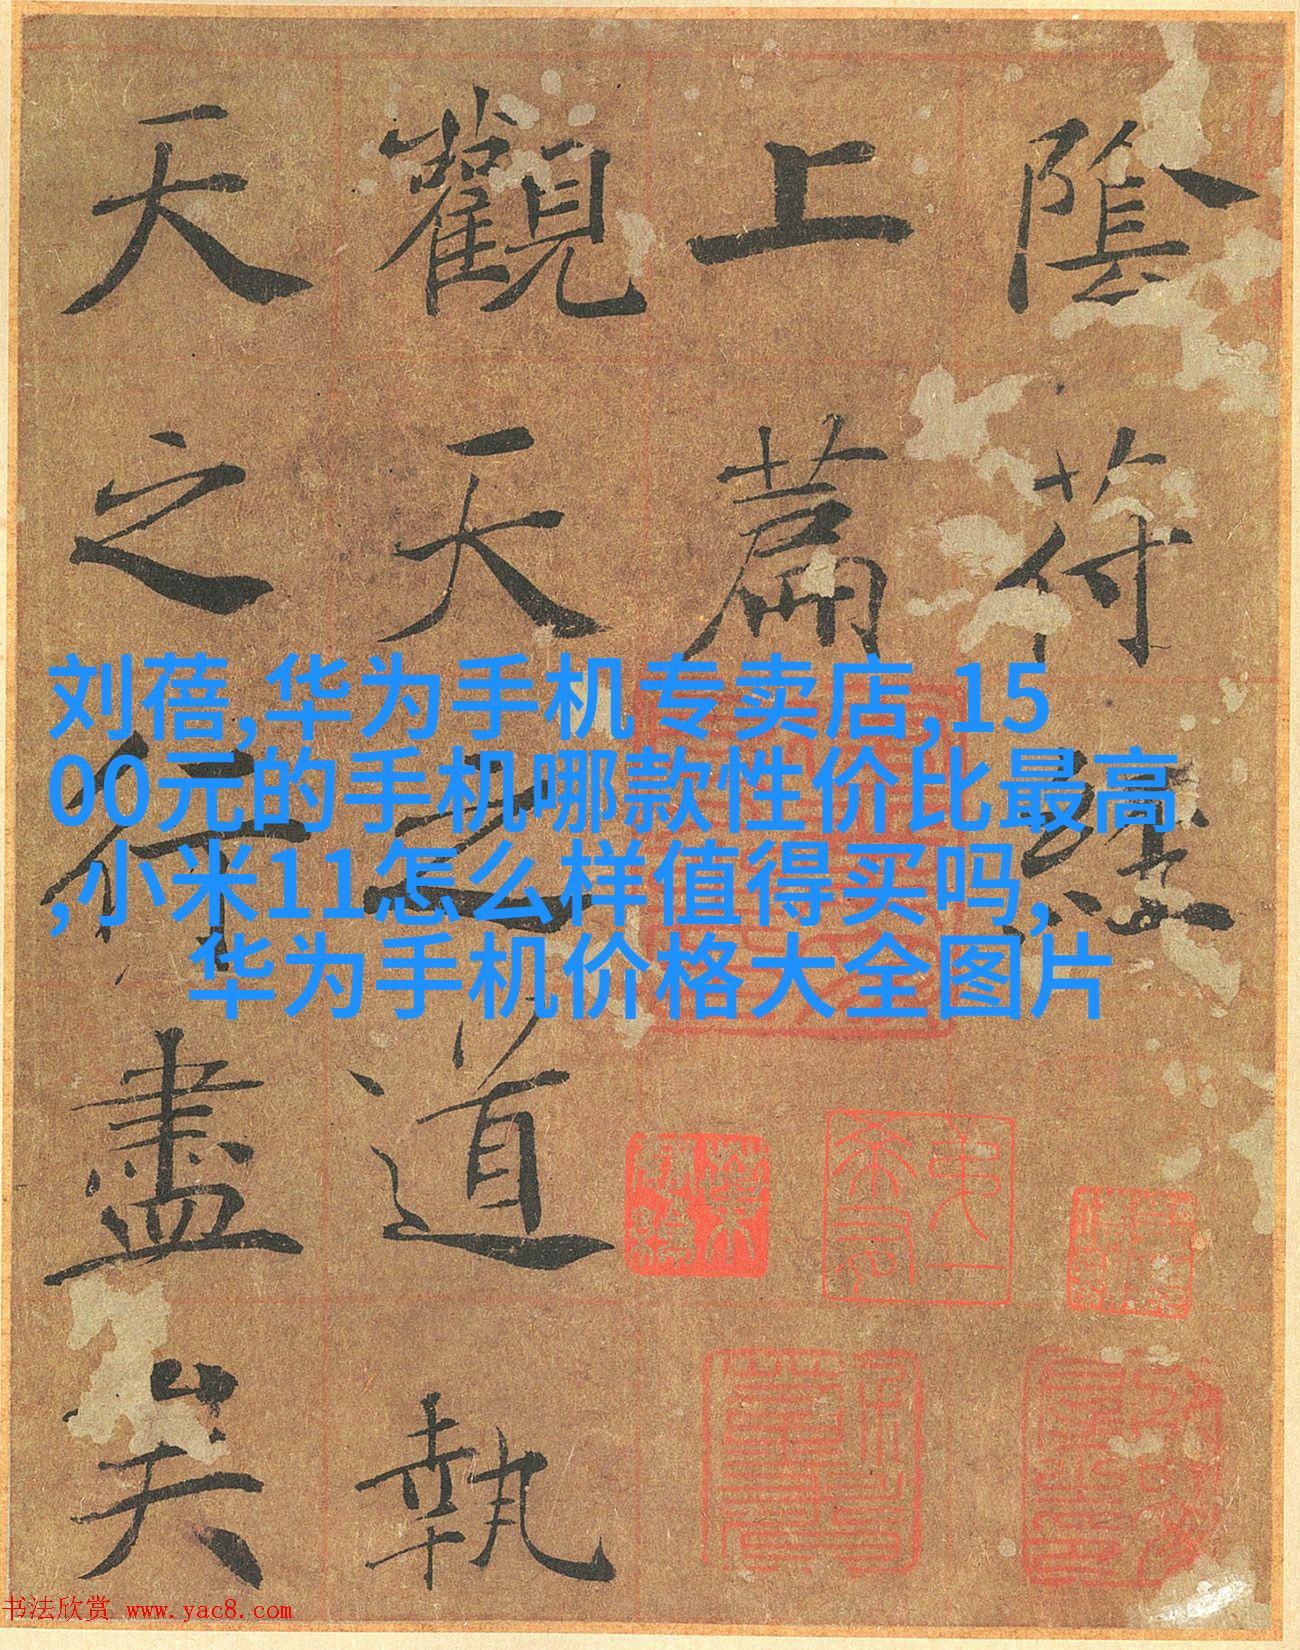 陰符經
上篇
觀天之道執
天之行盡矣
刘蓓,华为手机专卖店,15
00元的手机哪款性价比最高
,小米11怎么样值得买吗,
华为手机价格大全图片
书法欣赏 www.yac8.com